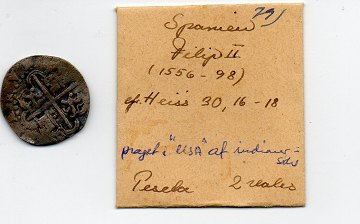 Spanien 79)
Filip II
(1556-98)
cf. Heiss 30, 16-18
præget i "USA" af indianer-
Sølv
Peseta 2 reales